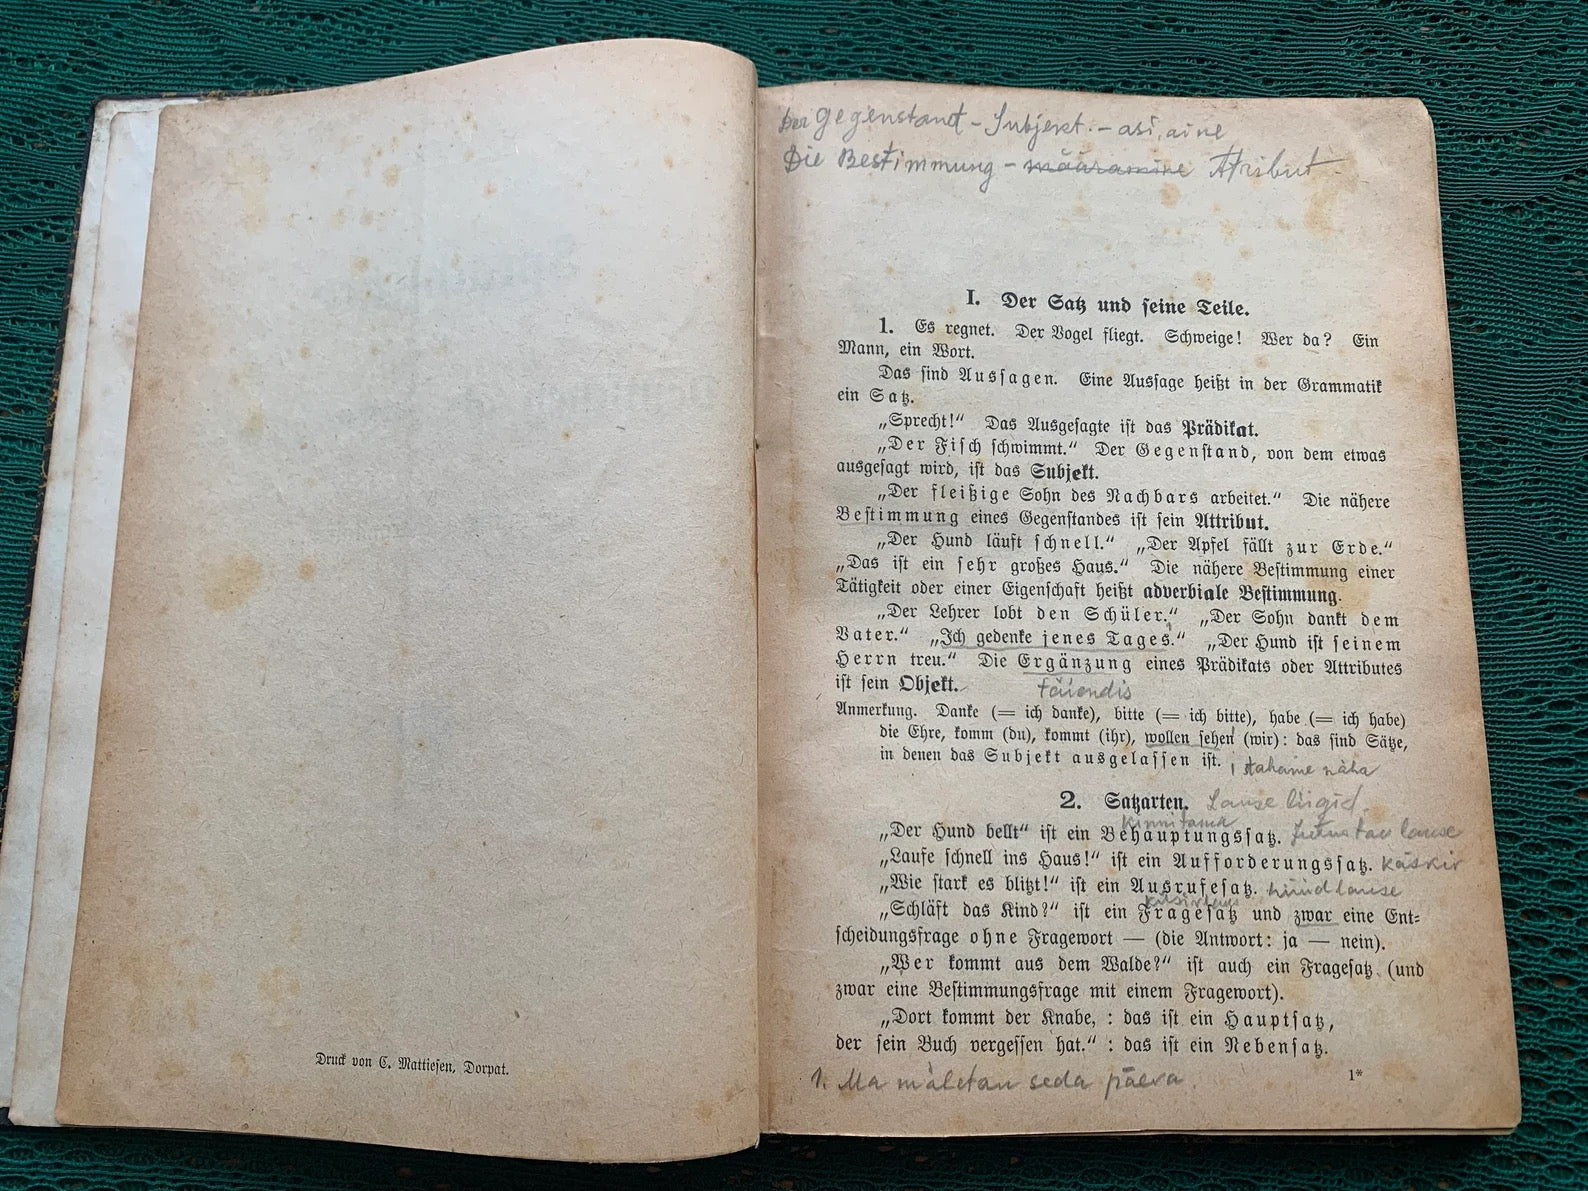 Druck von C. Mattiesen, Dorpat.
Der Gegenstand - Subjekt. - asi, aine
Die Bestimmung - määramine Atribut
I. Der Satz und seine Teile.
1. Es regnet. Der Vogel fliegt. Schweige! Wer da? Ein
Mann, ein Wort.
Das sind Aussagen. Eine Aussage heißt in der Grammatik
ein Satz.
„Sprecht!“ Das Ausgesagte ist das Prädikat.
„Der Fisch schwimmt.“ Der Gegenstand, von dem etwas
ausgesagt wird, ist das Subjekt.
„Der fleißige Sohn des Nachbars arbeitet.“ Die nähere
Bestimmung eines Gegenstandes ist sein Attribut.
„Der Hund läuft schnell.“ „Der Apfel fällt zur Erde.“
„Das ist ein sehr großes Haus.“ Die nähere Bestimmung einer
Tätigkeit oder einer Eigenschaft heißt adverbiale Bestimmung.
„Der Lehrer lobt den Schüler.“ „Der Sohn dankt dem
Vater.“ „Ich gedenke jenes Tages.“ „Der Hund ist seinem
Herrn treu.“ Die Ergänzung eines Prädikats oder Attributes
ist sein Objekt.
täiendis
Anmerkung. Danke (= ich danke), bitte (= ich bitte), habe (= ich habe)
die Ehre, komm (du), kommt (ihr), wollen sehen (wir): das sind Sätze,
in denen das Subjekt ausgelassen ist.
tahame näha
2. Satzarten. Lause liigid.
„Der Hund bellt“ ist ein Behauptungssatz. lause
„Laufe schnell ins Haus!“ ist ein Aufforderungssatz. käskiv
„Wie stark es blitzt!“ ist ein Ausrufesatz. hüüdlause
„Schläft das Kind?“ ist ein Fragesatz und zwar eine Ent-
scheidungsfrage ohne Fragewort — (die Antwort: ja — nein).
„Wer kommt aus dem Walde?“ ist auch ein Fragesatz (und
zwar eine Bestimmungsfrage mit einem Fragewort).
„Dort kommt der Knabe, : das ist ein Hauptsatz,
der sein Buch vergessen hat.“ : das ist ein Nebensatz.
1. Ma mäletan seda päeva.
1*